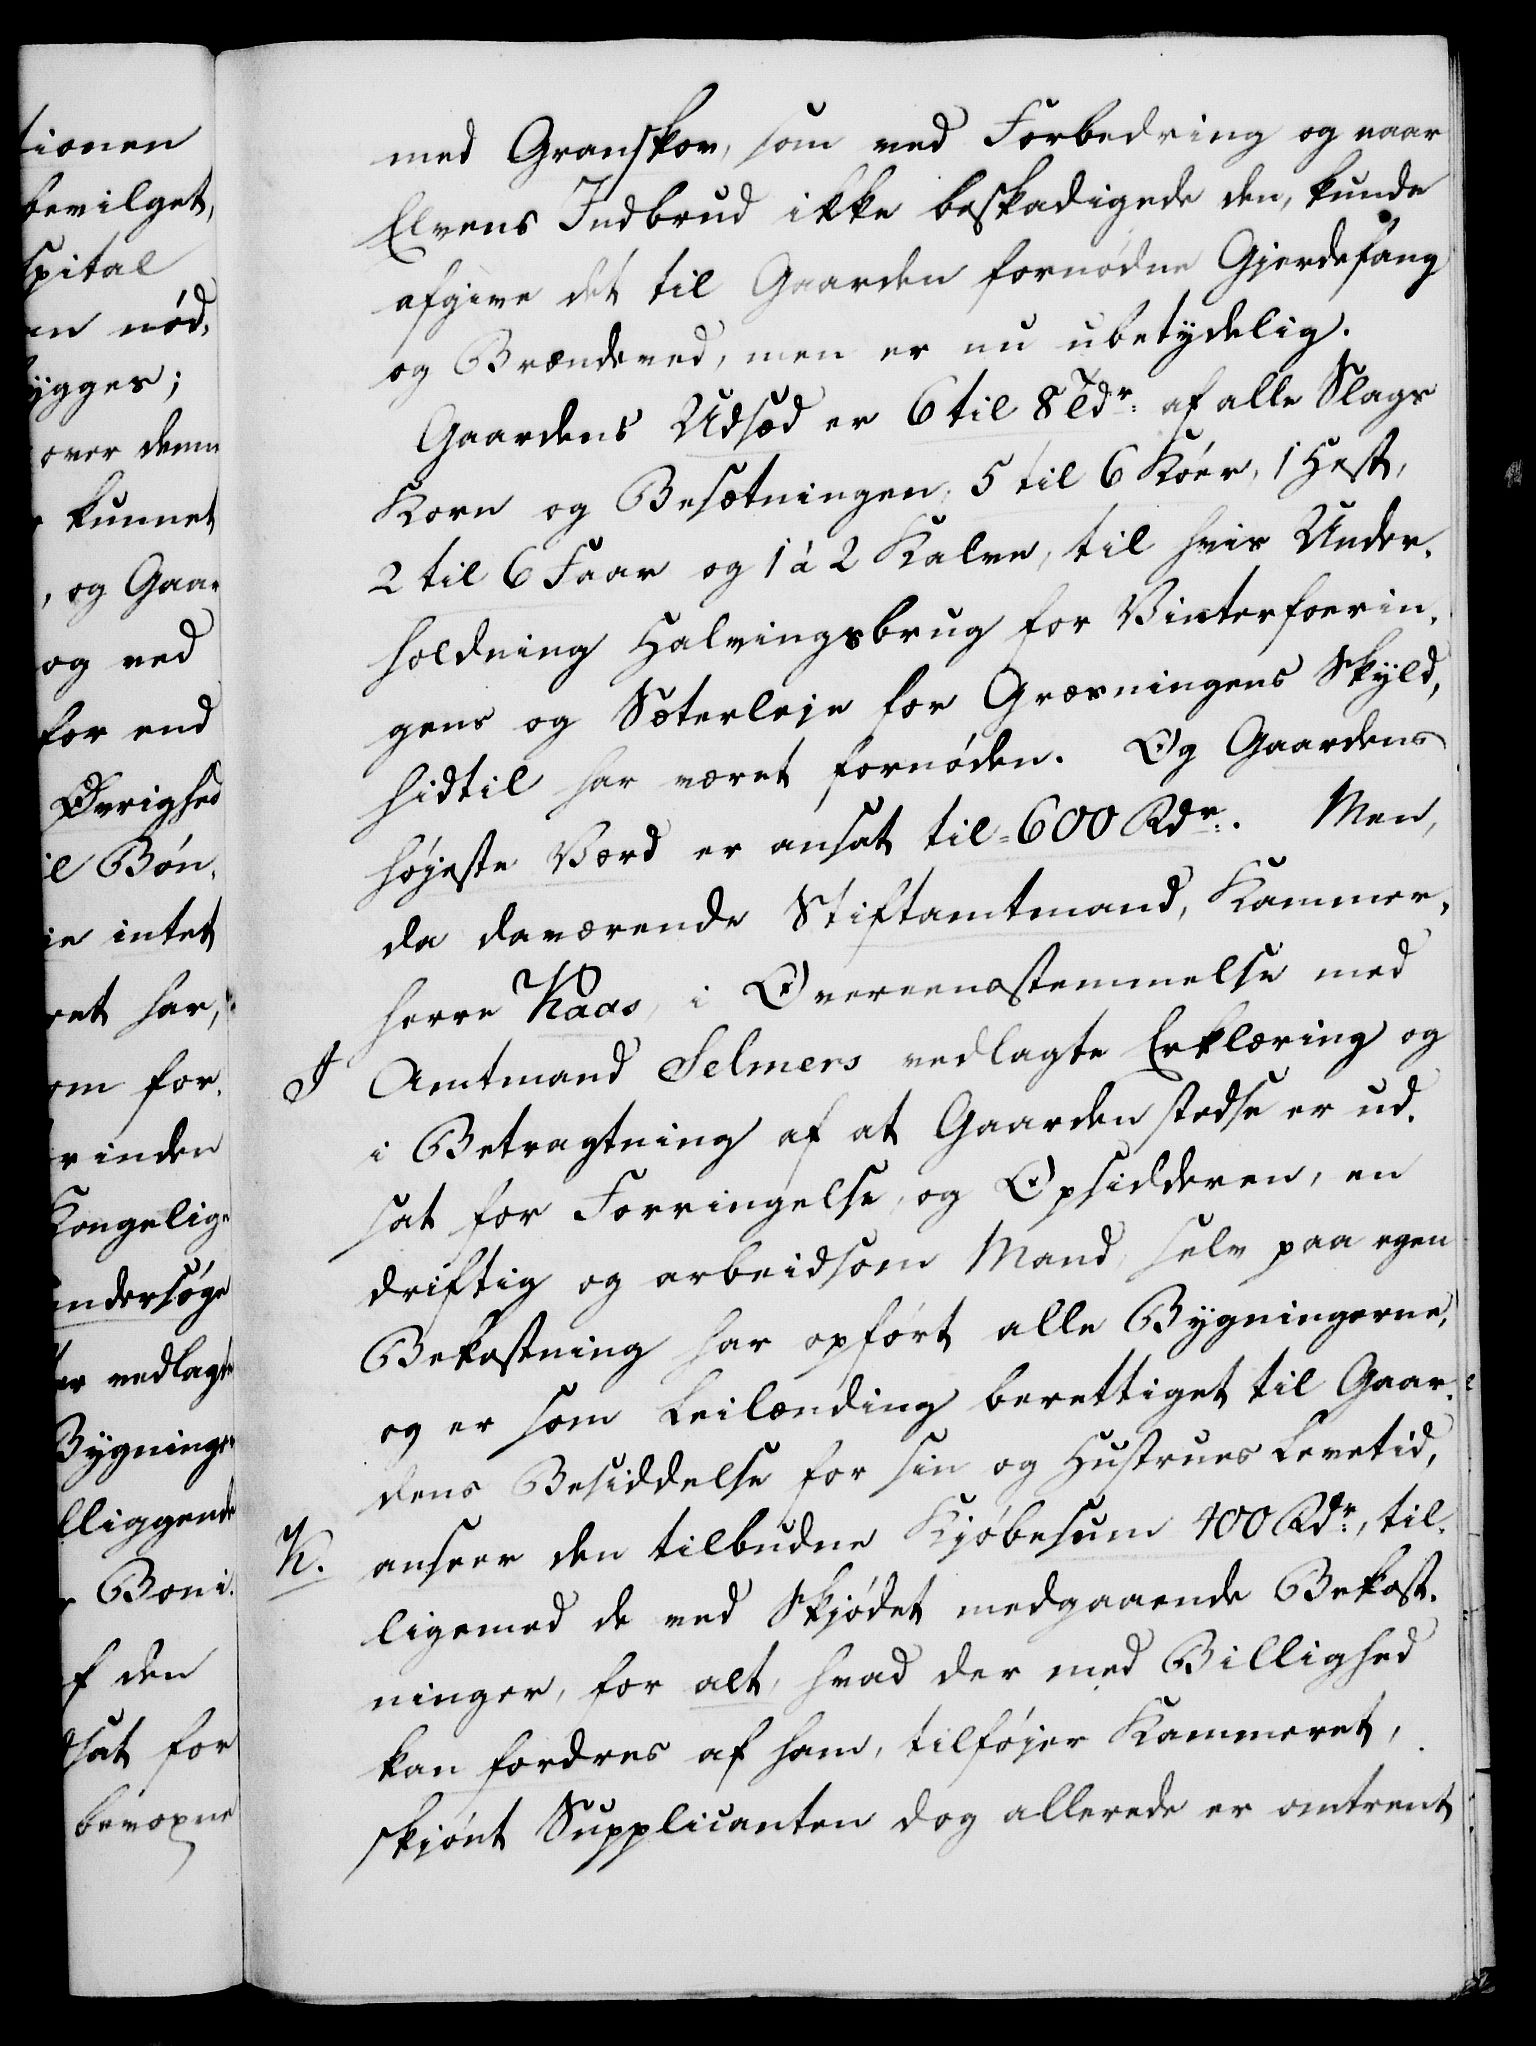 tionen
bevilget,
spital
en nød,
ygges;
over denn
kunnet
, og Gaa-
og ved
for end
Øvrighed
il Bøn,
ie intet
ret har,
om for,
r inden
Kongelig,
undersøge
er vedlagte
Bygnings,
lliggende
Boni,
f den
dsat for
bevoxne
med Granskov, som ved Forbedring og naar
Elvens Indbrud ikke beskadigede den, kunde
afgive det til Gaarden fornødne Gjerdefang
og Brændeved, men er nu ubetydelig.
Gaardens Udsæd er 6 til 8 Tdr: af alle Slags
Korn og Besætningen, 5 til 6 Køer, 1 Hest,
2 til 6 Faar og 1 à 2 Kalve, til hvis Under,
holdning Halvingsbrug for Vinterfoerin,
gens og Sæterleje for Græsningens Skyld,
hidtil har været fornøden. Og Gaardens
højeste Værd er ansat til 600 Rdr:. Men,
da daværende Stiftamtmand, Kammer,
herre Kaas, i Overeensstemmelse med
J Amtmand Selmers vedlagte Erklæring og
i Betragtning af at Gaarden stedse er ud,
sat for Forringelse, og Opsidderen, en
driftig og arbeidsom Mand, selv paa egen
Bekostning har opført alle Bygningerne,
og er som Leilænding berettiget til Gaar,
dens Besiddelse for sin og Hustrues Levetid,
K. anseer den tilbudne Kjøbesum 400 Rdr:, til,
ligemed de ved Skjødet medgaaende Bekost,
ninger, for alt, hvad der med Billighed
kan fordres af ham, tilføjer Kammeret,
skjønt Supplicanten dog allerede er omtrent